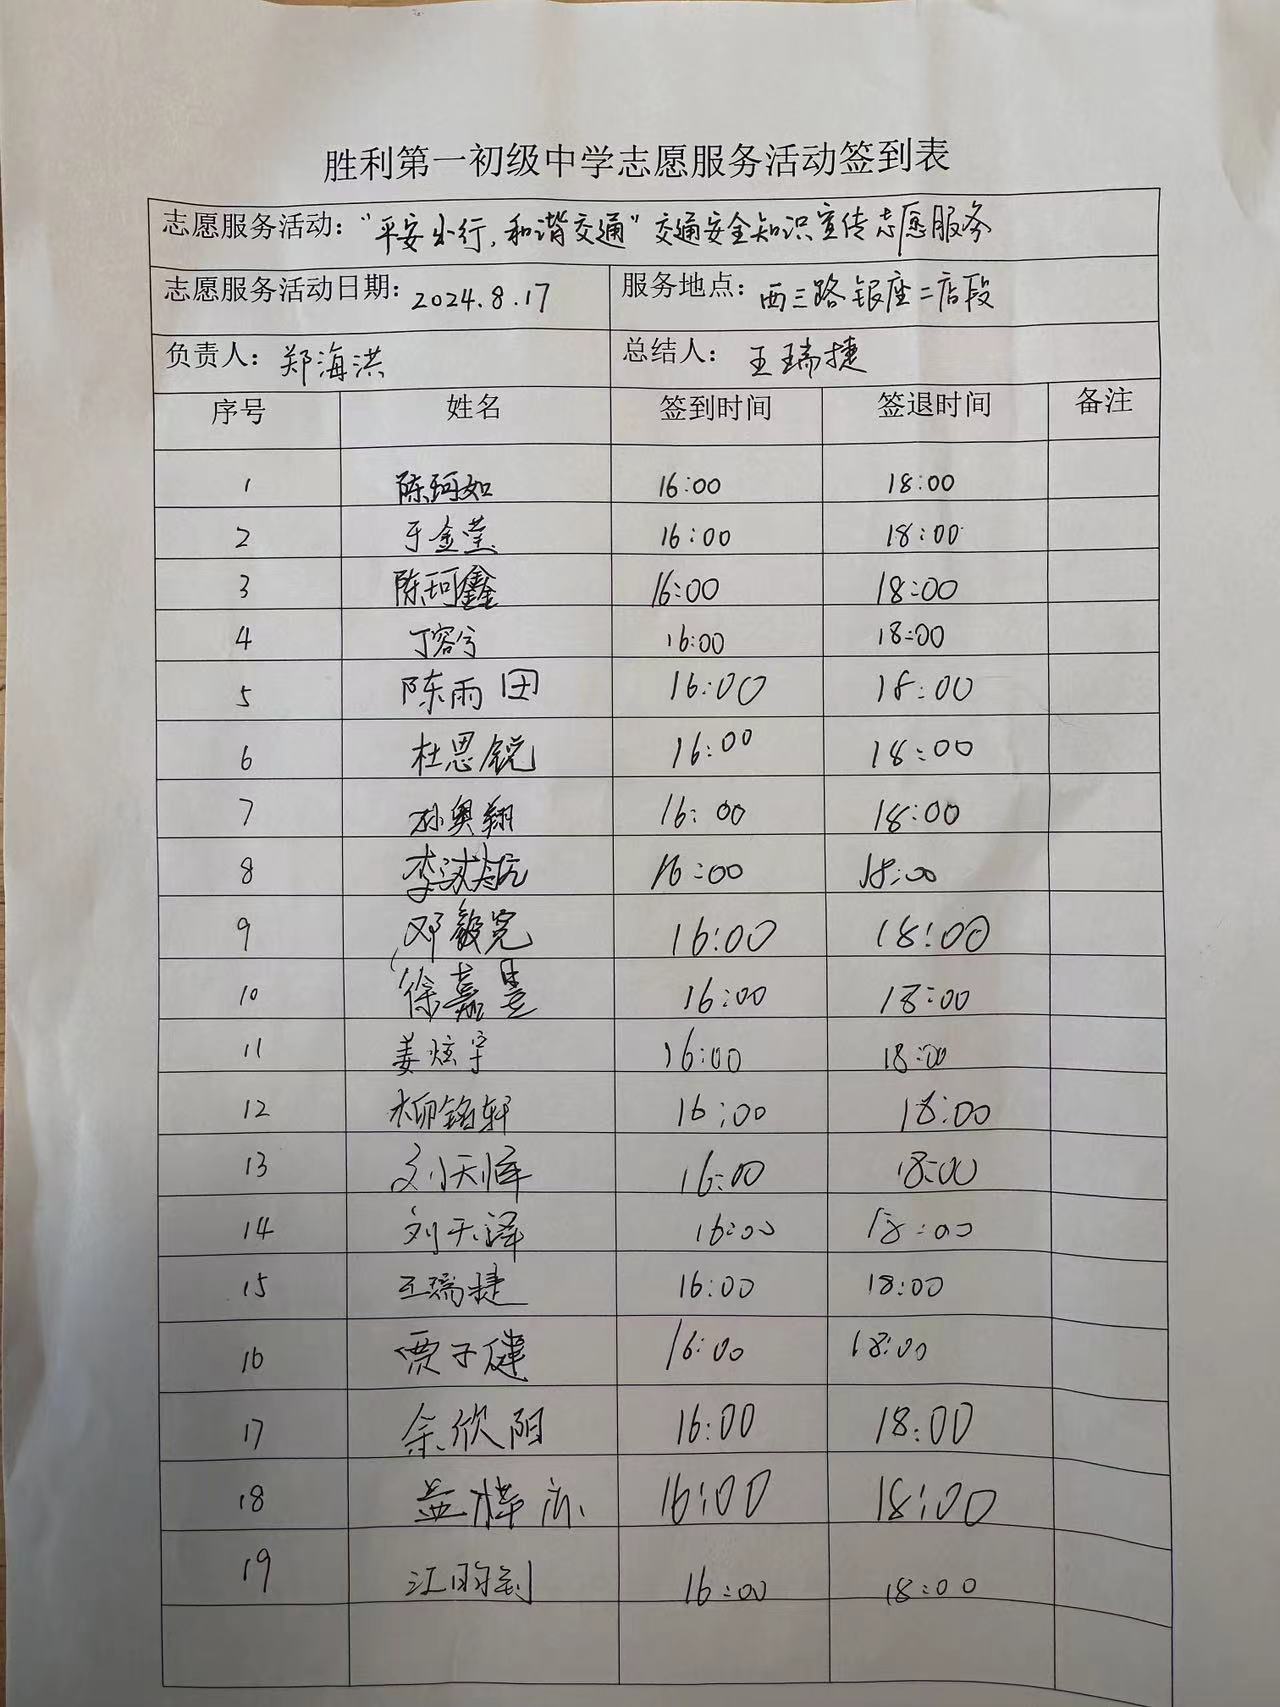 胜利第一初级中学志愿服务活动签到表
志愿服务活动：“平安出行，和谐交通”交通安全知识宣传志愿服务
志愿服务活动日期：2024.8.17 服务地点：西三路银座二店段
负责人：郑海洪 总结人：王瑞捷
序号 姓名 签到时间 签退时间 备注
1 陈珂如 16:00 18:00
2 于金莹 16:00 18:00
3 陈珂鑫 16:00 18:00
4 丁容兮 16:00 18:00
5 陈雨田 16:00 18:00
6 杜思锐 16:00 18:00
7 孙奥翔 16:00 18:00
8 李 16:00 18:00
9 邓毅宽 16:00 18:00
10 徐嘉昱 16:00 18:00
11 姜炫宇 16:00 18:00
12 柳铭轩 16:00 18:00
13 刘天恽 16:00 18:00
14 刘天泽 16:00 18:00
15 王瑞捷 16:00 18:00
16 贾子健 16:00 18:00
17 余欣阳 16:00 18:00
18 16:00 18:00
19 江 16:00 18:00